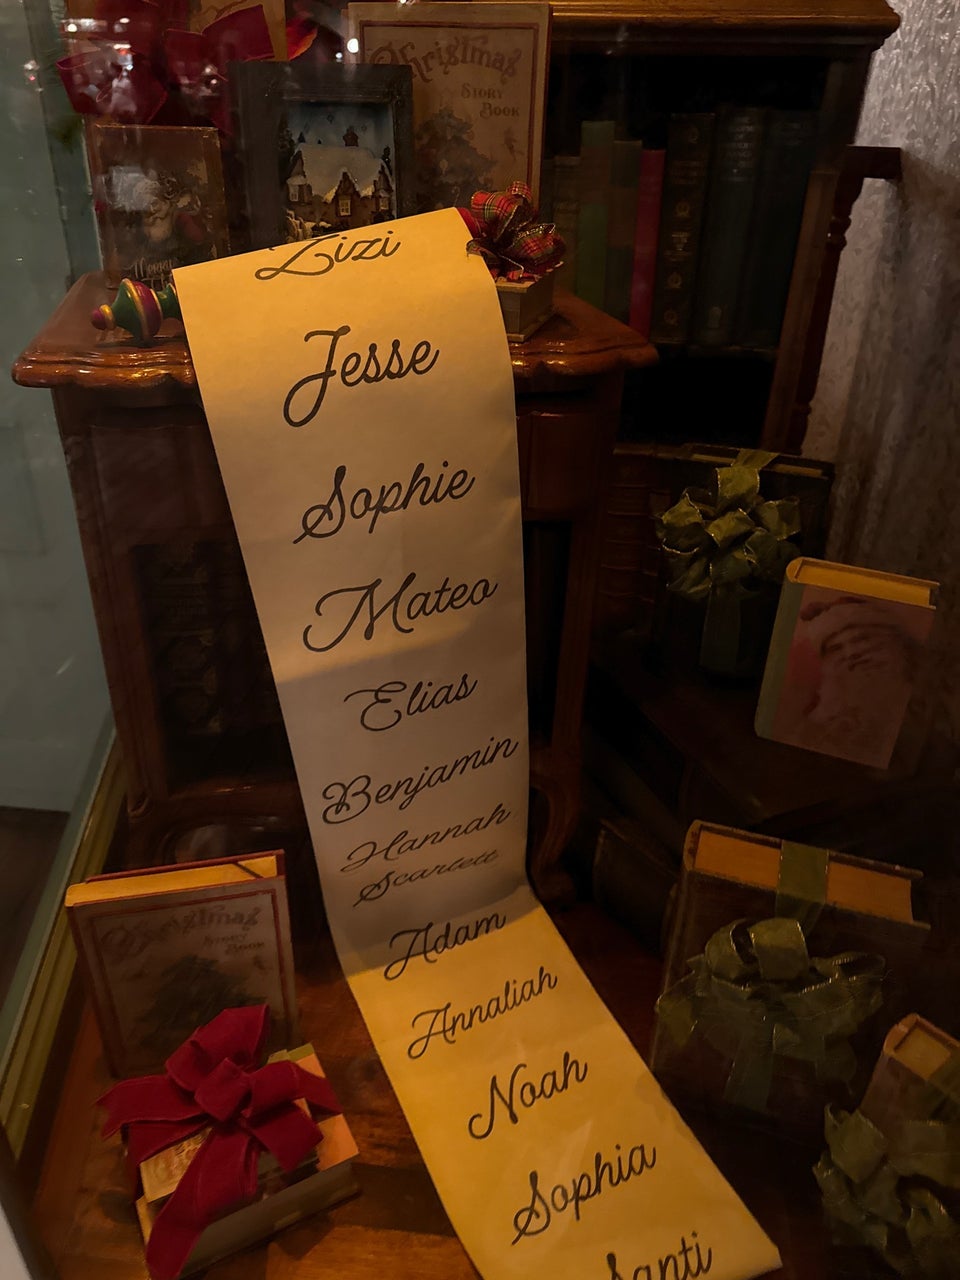 Christmas
Story
Book
Zizi
Jesse
Sophie
Mateo
Elias
Benjamin
Hannah
Scarlett
Adam
Annaliah
Noah
Sophia
Santi
Christmas
Story
Book